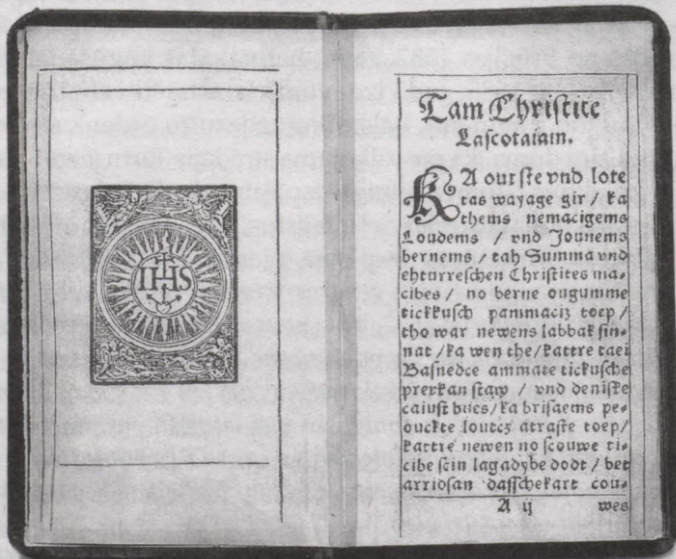 IHS
Tam Christite
Lascotaiam.
KA outste vnd lote
tas wayage gir / ka
thems nemacigems
Loudems / vnd Jounems
bernems / tah Summa vnd
ehturreschen Christites ma-
cibes / no berne ougumme
tickkusch pammaciz toep /
tho war newens labbak sin-
nat / ka wen the / kattre taei
Basnedce ammate tickusche
preekan staw / vnd deniske
caiust bues / ka brisaems pe-
ouckte loutcz atraste toep /
kattre newen no scouwe ti-
cibe scin lagadybe dodt / bet
arridsan dasschekart cou-
A ij wes